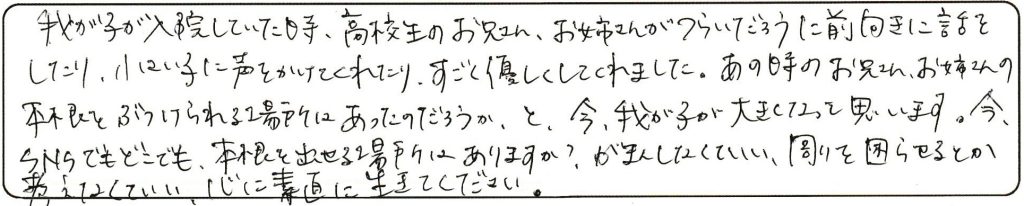 我が子が入院していた時、高校生のお兄さん、お姉さんがつらいだろうに前向きに話を
したり、小さい子に声をかけてくれたり、すごく優しくしてくれました。あの時のお兄さん、お姉さんの
本根をぶつけられる場所はあったのだろうか、と、今、我が子が大きくなって思います。今、
SNSでもどこでも、本根を出せる場所はありますか?、がまんしなくていい、周りを困らせるとか
考えなくていい、心に素直に生きてください。